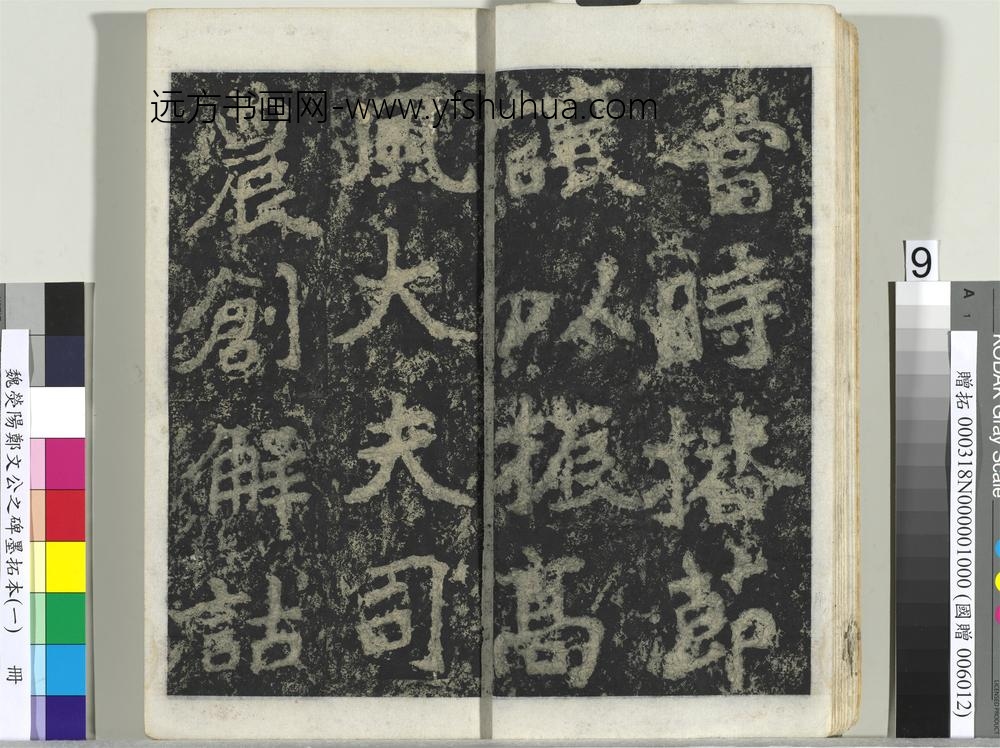 远方书画网-www.yfshuhua.com
當時播節
讓以振高
風大夫司
農創解詁
9
A
1
KODAK Gray Scale
贈拓 000318N000001000 (國贈 006012)
魏滎陽鄭文公之碑墨拓本(一) 冊